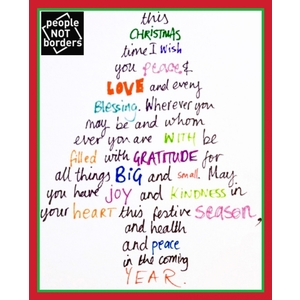 people
NOT
borders
this
CHRISTMAS
time I wish
you peace &
LOVE and every
Blessing. Wherever you
may be and whom
ever you are WITH be
filled with GRATITUDE for
all things BIG and small. May
you have JOY and KINDNESS in
your HEART this festive SEASON,
and health
and peace
in the coming
YEAR.